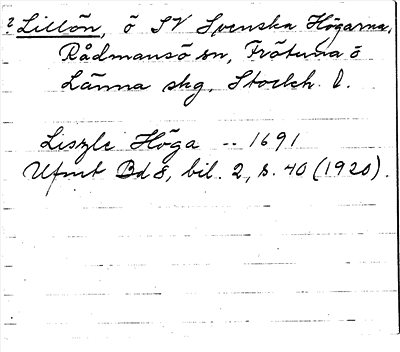 ? Lillön, ö SV Svenska Högarna,
Rådmansö sn, Frötuna ö
Länna skg, Stockh. l.
Liszle Höga -- 1691
Ufmt Bd 8, bil. 2, s. 40 (1920).